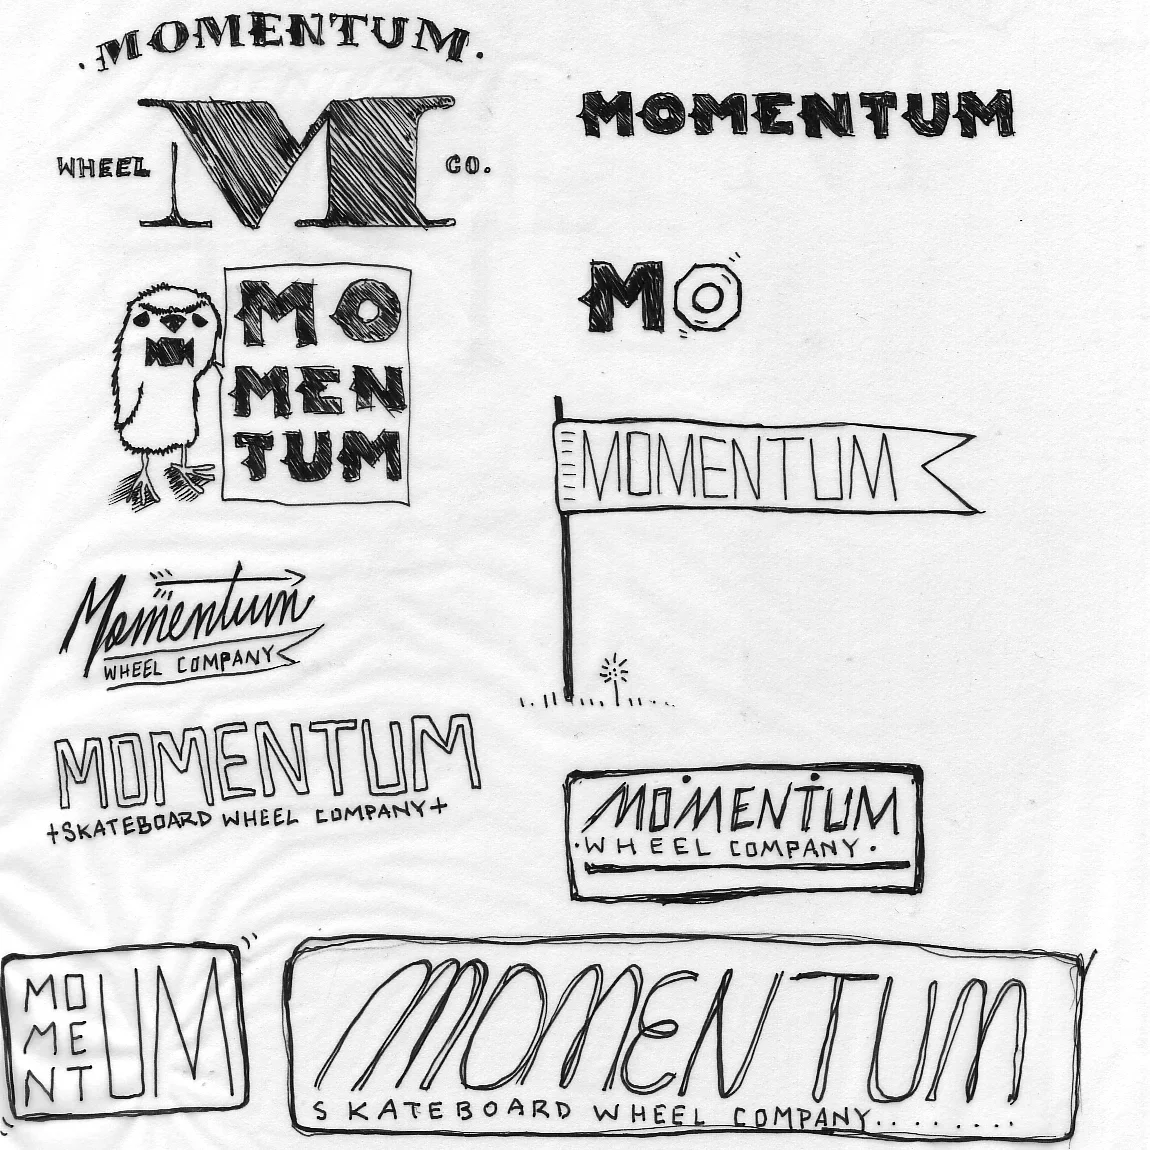 ·MOMENTUM·
WHEEL M CO.
MOMENTUM
MO
MO
MEN
TUM
MOMENTUM
Momentum
WHEEL COMPANY
MOMENTUM
+SKATEBOARD WHEEL COMPANY+
MOMENTUM
·WHEEL COMPANY·
MO
ME
NTUM
MOMENTUM
SKATEBOARD WHEEL COMPANY........